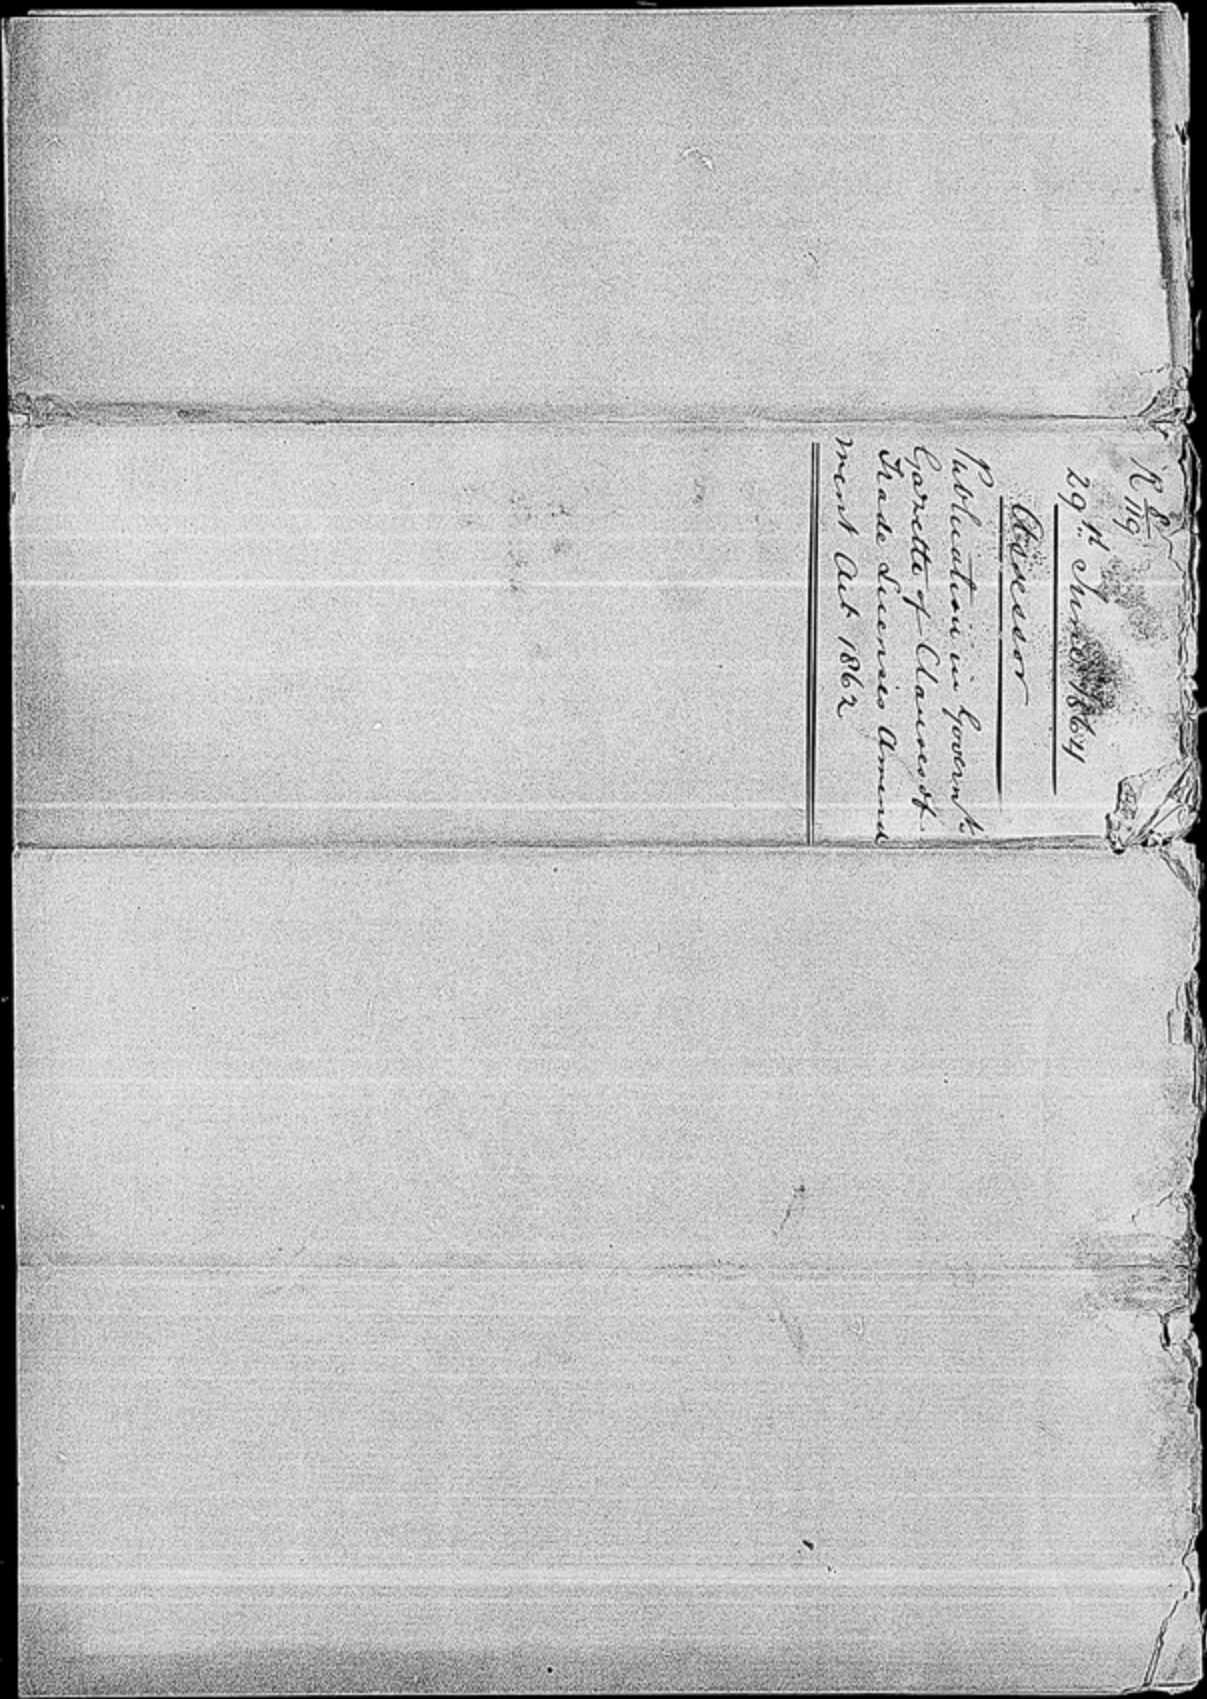 R 8/119
29th June 1864
Assessor
Publication in Governt.
Gazette of Clauses of
Trade Licenses Amend
ment Act 1862